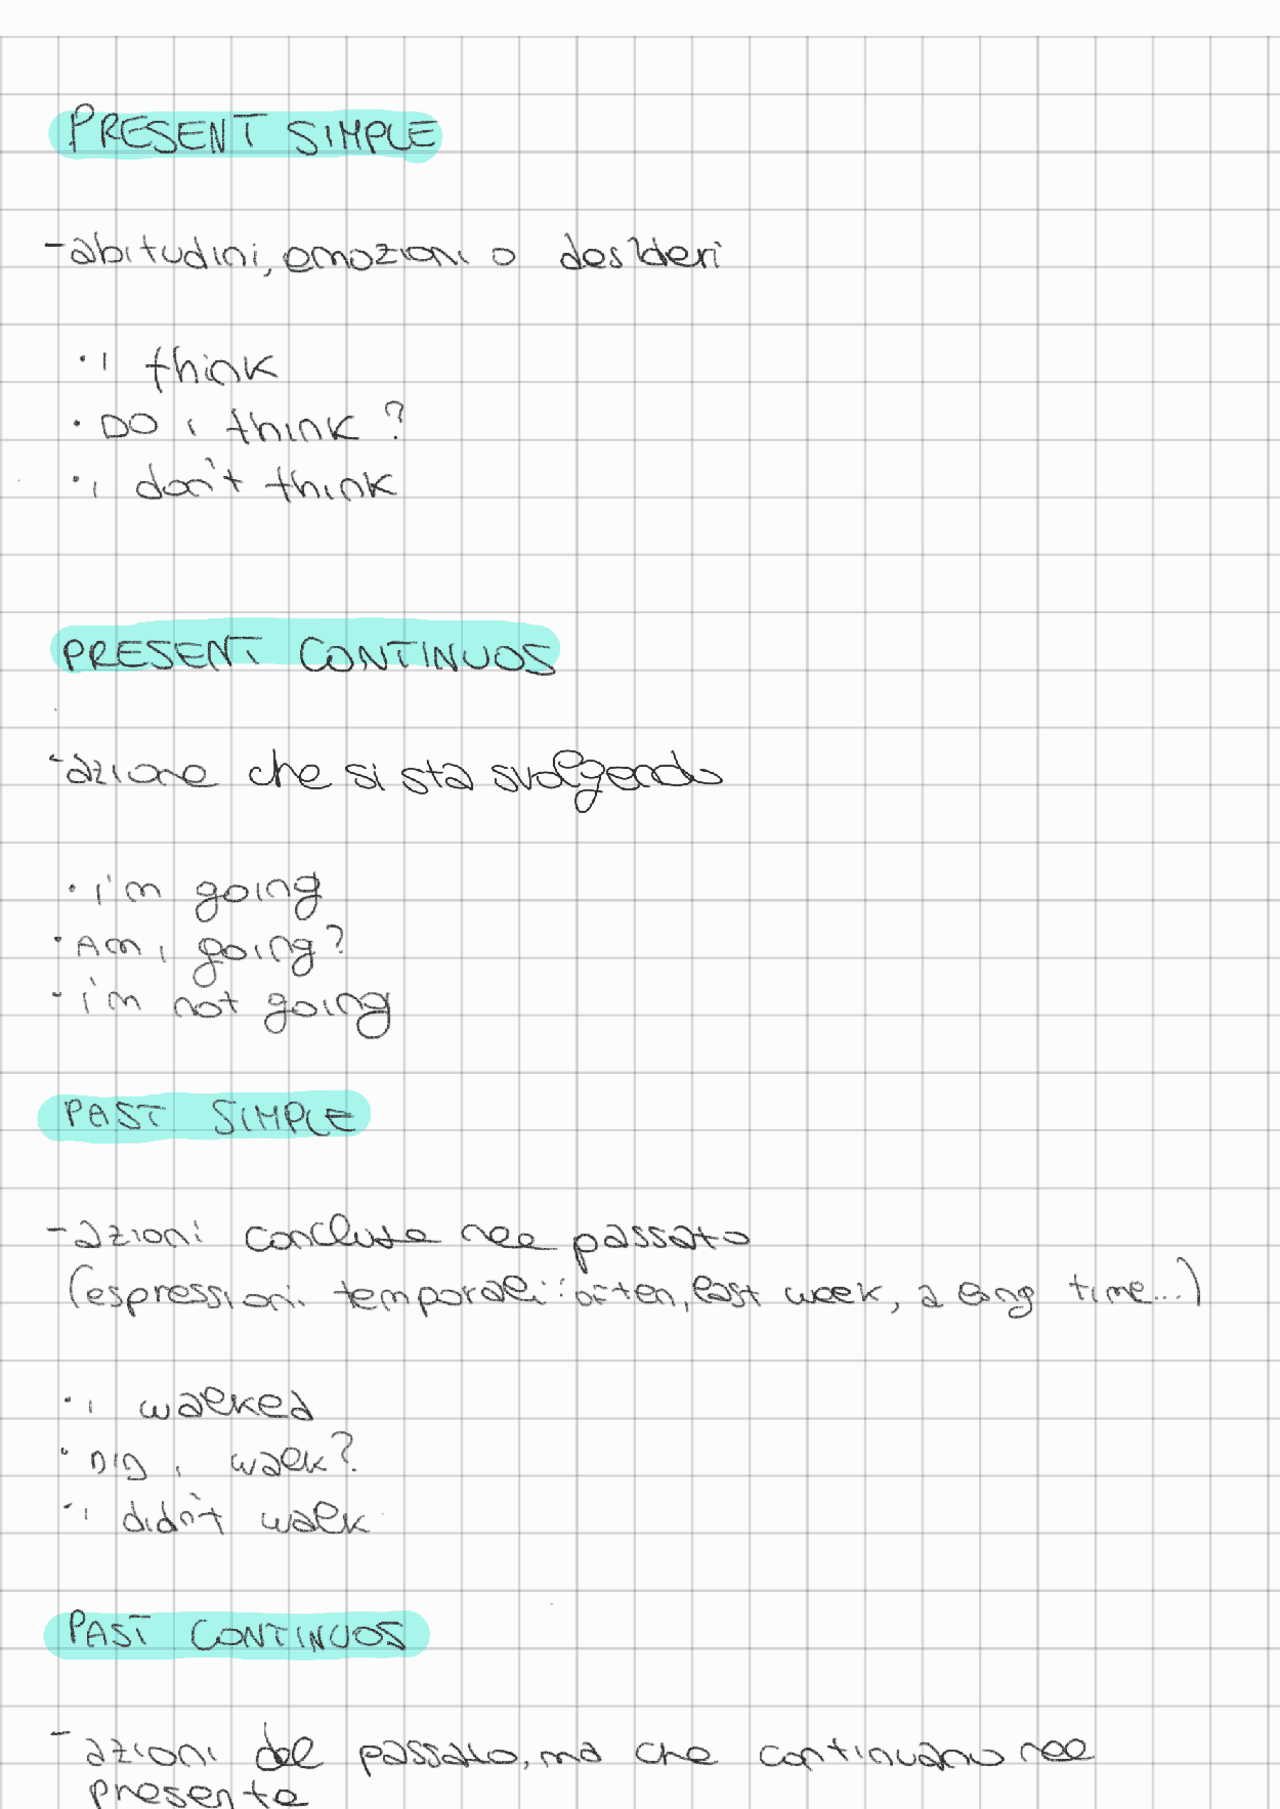 PRESENT SIMPLE
- abitudini, emozioni o desideri
• i think
• DO i think?
• i don't think
PRESENT CONTINUOS
- azione che si sta svolgendo
• i'm going
• Am i going?
• i'm not going
PAST SIMPLE
- azioni concluse nel passato
(espressioni temporali: often, last week, a long time...)
• i walked
• DID i walk?
• i didn't walk
PAST CONTINUOS
- azioni del passato, ma che continuano nel
presente